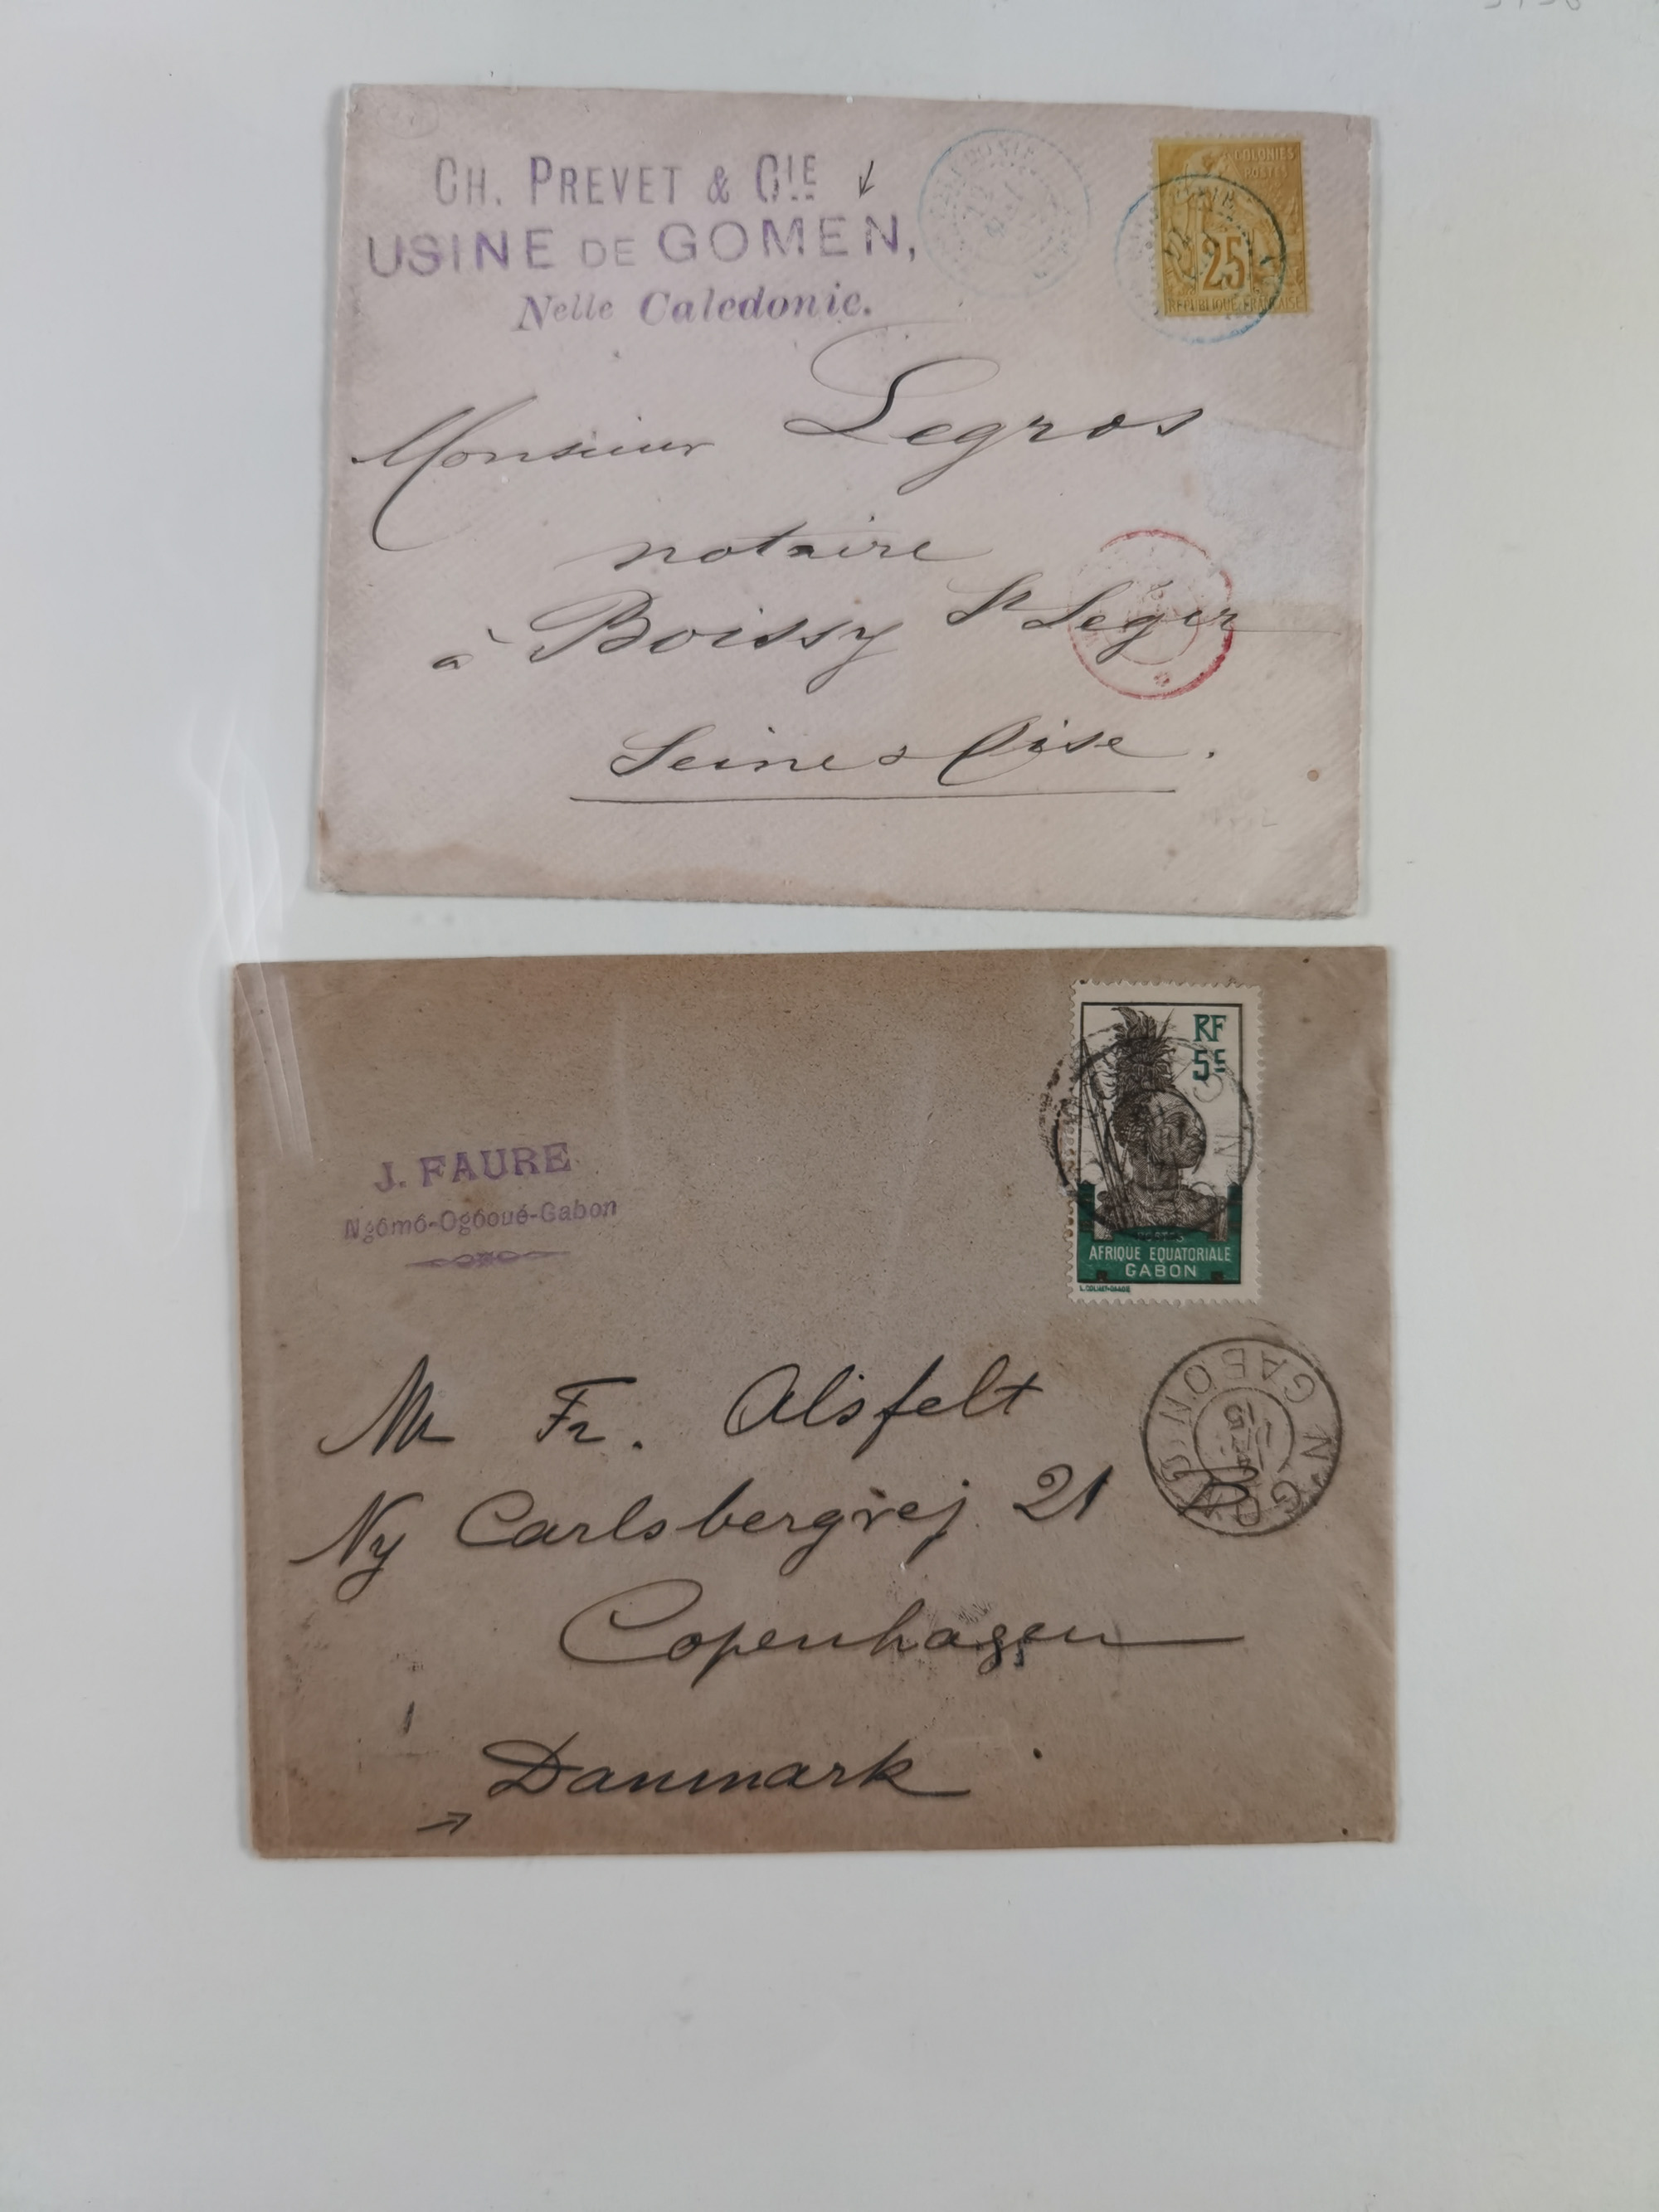 CH. PREVET & CIE
USINE DE GOMEN,
Nelle Caledonie.
COLONIES
POSTES
25
REPUBLIQUE FRANCAISE
Monsieur Legros
notaire
à Boissy St Leger
Seine & Oise.
RF
5c
POSTES
AFRIQUE EQUATORIALE
GABON
J. FAURE
Ngômô-Ogôoué-Gabon
M Fr. Alsfelt
Ny Carlsbergvej 21
Copenhagen
Danmark
GABON
15